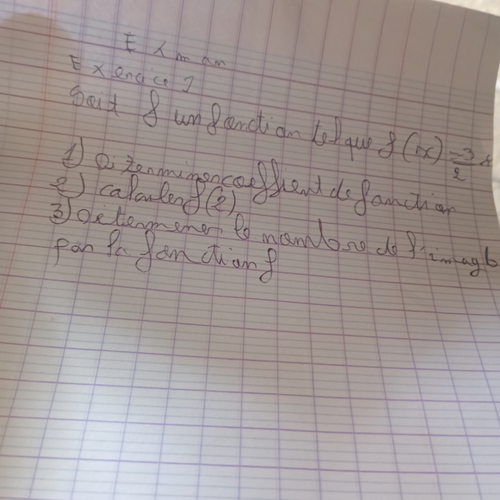 Exman
Exercice 1
Soit f un fonction tel que f(x) = 3/2 x
1) Déterminer coeffient de fonction
2) calculer f(2)
3) déterminer le nombre de l'image 6
par la fonction f